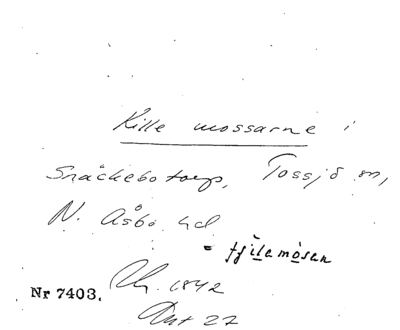 Kille mossarne i
Snäckebotorp, Tossjö sn,
N. Åsbo hd
= tjilamosan
Nr 7403.
1842
Akt 27